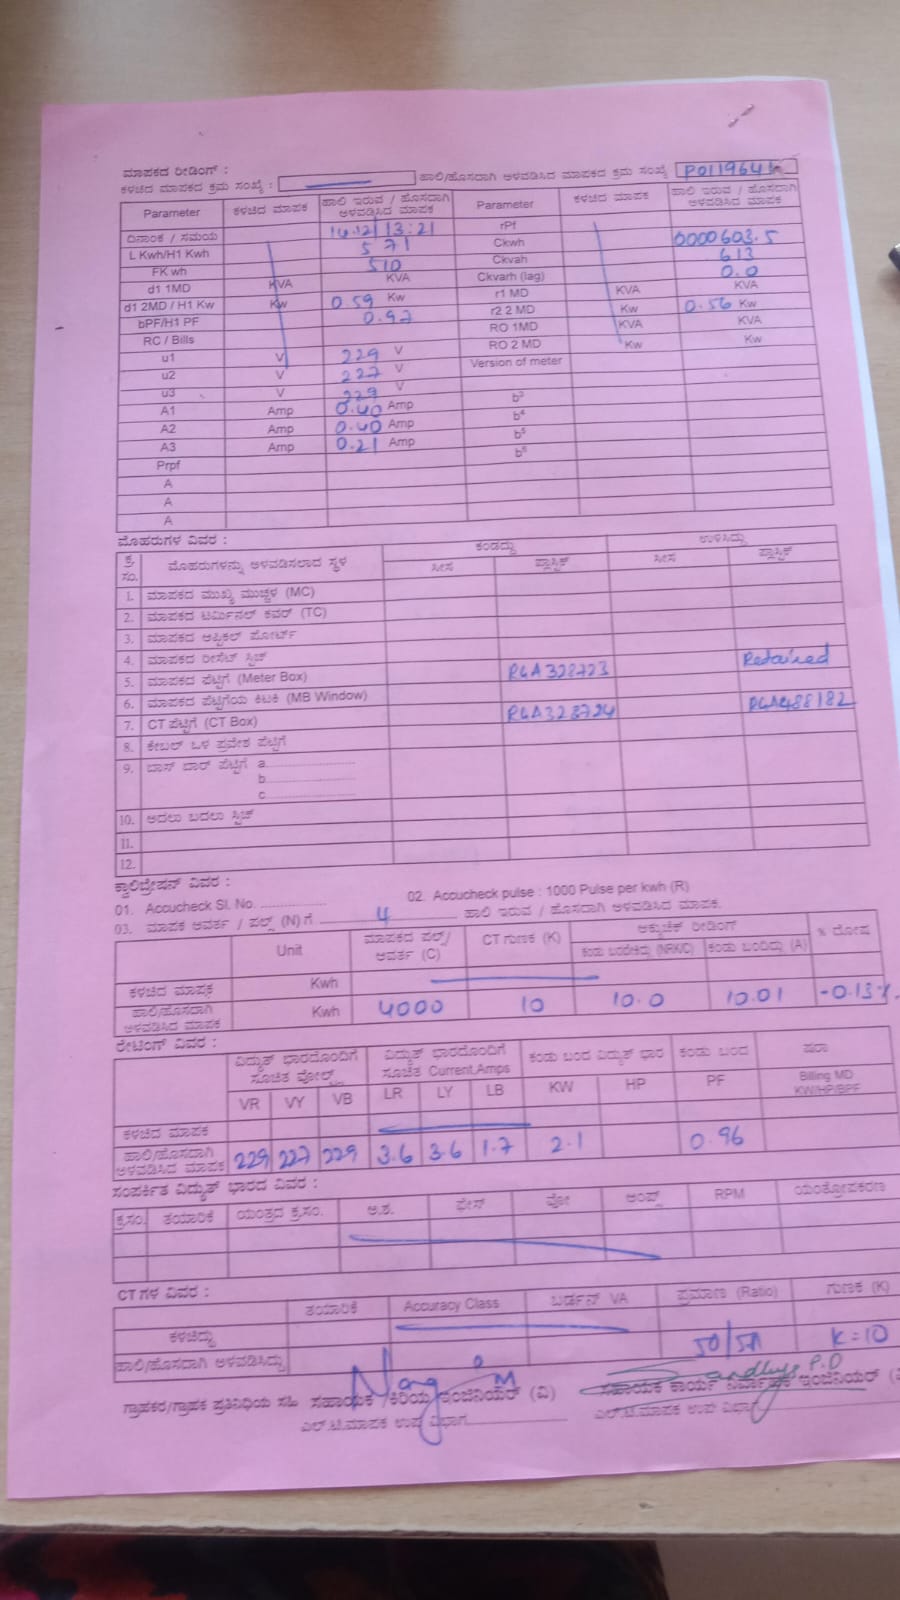 ಮಾಪಕದ ರೀಡಿಂಗ್ :
ಕಳಚಿದ ಮಾಪಕದ ಕ್ರಮ ಸಂಖ್ಯೆ : ಹಾಲಿ/ಹೊಸದಾಗಿ ಅಳವಡಿಸಿದ ಮಾಪಕದ ಕ್ರಮ ಸಂಖ್ಯೆ
Parameter ಕಳಚಿದ ಮಾಪಕ ಹಾಲಿ ಇರುವ / ಹೊಸದಾಗಿ ಅಳವಡಿಸಿದ ಮಾಪಕ Parameter ಕಳಚಿದ ಮಾಪಕ ಹಾಲಿ ಇರುವ / ಹೊಸದಾಗಿ ಅಳವಡಿಸಿದ ಮಾಪಕ
ದಿನಾಂಕ / ಸಮಯ 14.12/13:21 rPf
L Kwh/H1 Kwh 571 Ckwh 0000603.5
FK wh 510 Ckvah 613
d1 1MD KVA KVA Ckvarh (lag) 0.0
d1 2MD / H1 Kw Kw 0.59 Kw r1 MD KVA KVA
bPF/H1 PF 0.97 r2 2 MD Kw 0.56 Kw
RC / Bills RO 1MD KVA KVA
u1 V 229 V RO 2 MD Kw Kw
u2 V 227 V Version of meter
u3 V 229 V
A1 Amp 0.40 Amp b³
A2 Amp 0.40 Amp b⁴
A3 Amp 0.21 Amp b⁵
Prpf b⁶
A
A
A
ಮೊಹರುಗಳ ವಿವರ :
ಕ್ರ. ಸಂ. ಮೊಹರುಗಳನ್ನು ಅಳವಡಿಸಲಾದ ಸ್ಥಳ ಕಂಡದ್ದು ಉಳಿಸಿದ್ದು
ಸೀಸ ಪ್ಲಾಸ್ಟಿಕ್ ಸೀಸ ಪ್ಲಾಸ್ಟಿಕ್
1. ಮಾಪಕದ ಮುಖ್ಯ ಮುಚ್ಚಳ (MC)
2. ಮಾಪಕದ ಟರ್ಮಿನಲ್ ಕವರ್ (TC)
3. ಮಾಪಕದ ಆಪ್ಟಿಕಲ್ ಪೋರ್ಟ್
4. ಮಾಪಕದ ರೀಸೆಟ್ ಸ್ವಿಚ್
5. ಮಾಪಕದ ಪೆಟ್ಟಿಗೆ (Meter Box) RGA328723 Retained
6. ಮಾಪಕದ ಪೆಟ್ಟಿಗೆಯ ಕಿಟಕಿ (MB Window)
7. CT ಪೆಟ್ಟಿಗೆ (CT Box) RGA328724 RGA488182
8. ಕೇಬಲ್ ಒಳ ಪ್ರವೇಶ ಪೆಟ್ಟಿಗೆ
9. ಬಾಸ್ ಬಾರ್ ಪೆಟ್ಟಿಗೆ a
b
c
10. ಅದಲು ಬದಲು ಸ್ವಿಚ್
11.
12.
ಕ್ಯಾಲಿಬ್ರೇಷನ್ ವಿವರ :
01. Accucheck Sl. No. 02. Accucheck pulse : 1000 Pulse per kwh (R)
03. ಮಾಪಕ ಆವರ್ತ / ಪಲ್ಸ್ (N) ಗೆ 4 ಹಾಲಿ ಇರುವ / ಹೊಸದಾಗಿ ಅಳವಡಿಸಿದ ಮಾಪಕ.
Unit ಮಾಪಕದ ಪಲ್ಸ್/ ಆವರ್ತ (C) CT ಗುಣಕ (K) ಅಕ್ಯುಚೆಕ್ ರೀಡಿಂಗ್ % ದೋಷ
ಕಂಡು ಬರಬೇಕಿದ್ದು (NRK/C) ಕಂಡು ಬಂದಿದ್ದು (A)
ಕಳಚಿದ ಮಾಪಕ Kwh
ಹಾಲಿ/ಹೊಸದಾಗಿ ಅಳವಡಿಸಿದ ಮಾಪಕ Kwh 4000 10 10.0 10.01 -0.13%
ರೇಟಿಂಗ್ ವಿವರ :
ವಿದ್ಯುತ್ ಭಾರದೊಂದಿಗೆ ಸೂಚಿತ ವೋಲ್ಟ್ಸ್ ವಿದ್ಯುತ್ ಭಾರದೊಂದಿಗೆ ಸೂಚಿತ Current.Amps ಕಂಡು ಬಂದ ವಿದ್ಯುತ್ ಭಾರ ಕಂಡು ಬಂದ ಷರಾ
VR VY VB LR LY LB KW HP PF Billing MD KW/HP/BPF
ಕಳಚಿದ ಮಾಪಕ
ಹಾಲಿ/ಹೊಸದಾಗಿ ಅಳವಡಿಸಿದ ಮಾಪಕ 229 227 229 3.6 3.6 1.7 2.1 0.96
ಸಂಪರ್ಕಿತ ವಿದ್ಯುತ್ ಭಾರದ ವಿವರ :
ಕ್ರ.ಸಂ. ತಯಾರಿಕೆ ಯಂತ್ರದ ಕ್ರ.ಸಂ. ಅ.ಶ. ಫೇಸ್ ವೋ ಆಂಪ್ಸ್ RPM ಯಂತ್ರೋಪಕರಣ
CT ಗಳ ವಿವರ :
ತಯಾರಿಕೆ Accuracy Class ಬರ್ಡನ್ VA ಪ್ರಮಾಣ (Ratio) ಗುಣಕ (K)
ಕಳಚಿದ್ದು
ಹಾಲಿ/ಹೊಸದಾಗಿ ಅಳವಡಿಸಿದ್ದು 50/5A K=10
ಗ್ರಾಹಕರ/ಗ್ರಾಹಕ ಪ್ರತಿನಿಧಿಯ ಸಹಿ ಸಹಾಯಕ /ಕಿರಿಯ ಇಂಜಿನಿಯರ್ (ವಿ) ಸಹಾಯಕ ಕಾರ್ಯ ನಿರ್ವಾಹಕ ಇಂಜಿನಿಯರ್
ಎಲ್.ಟಿ.ಮಾಪಕ ಉಪ ವಿಭಾಗ ಎಲ್.ಟಿ.ಮಾಪಕ ಉಪ ವಿಭಾಗ